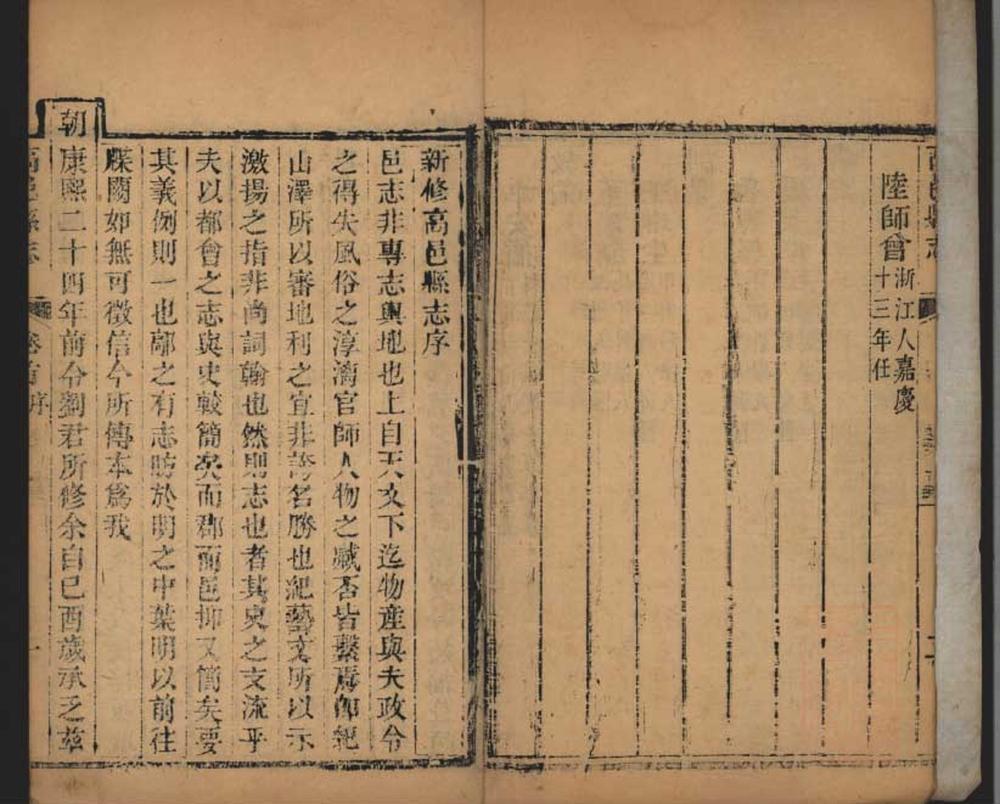 高邑縣志
陸師曾浙江人嘉慶
十三年任
新修高邑縣志序
邑志非專志輿地也上自天文下迄物產與夫政令
之得失風俗之淳漓官師人物之臧否皆繫焉卽紀
山澤所以審地利之宜非誇名勝也紀藝文所以示
激揚之指非尚詞翰也然則志也者其史之支流乎
夫以都會之志與史較簡矣而郡而邑抑又簡矣要
其義例則一也鄗之有志昉於明之中葉明以前往
牒闕如無可徵信今所傳本爲我
朝
康熙二十四年前令劉君所修余自己酉歲承乏茲
高邑縣志
卷首
序
一